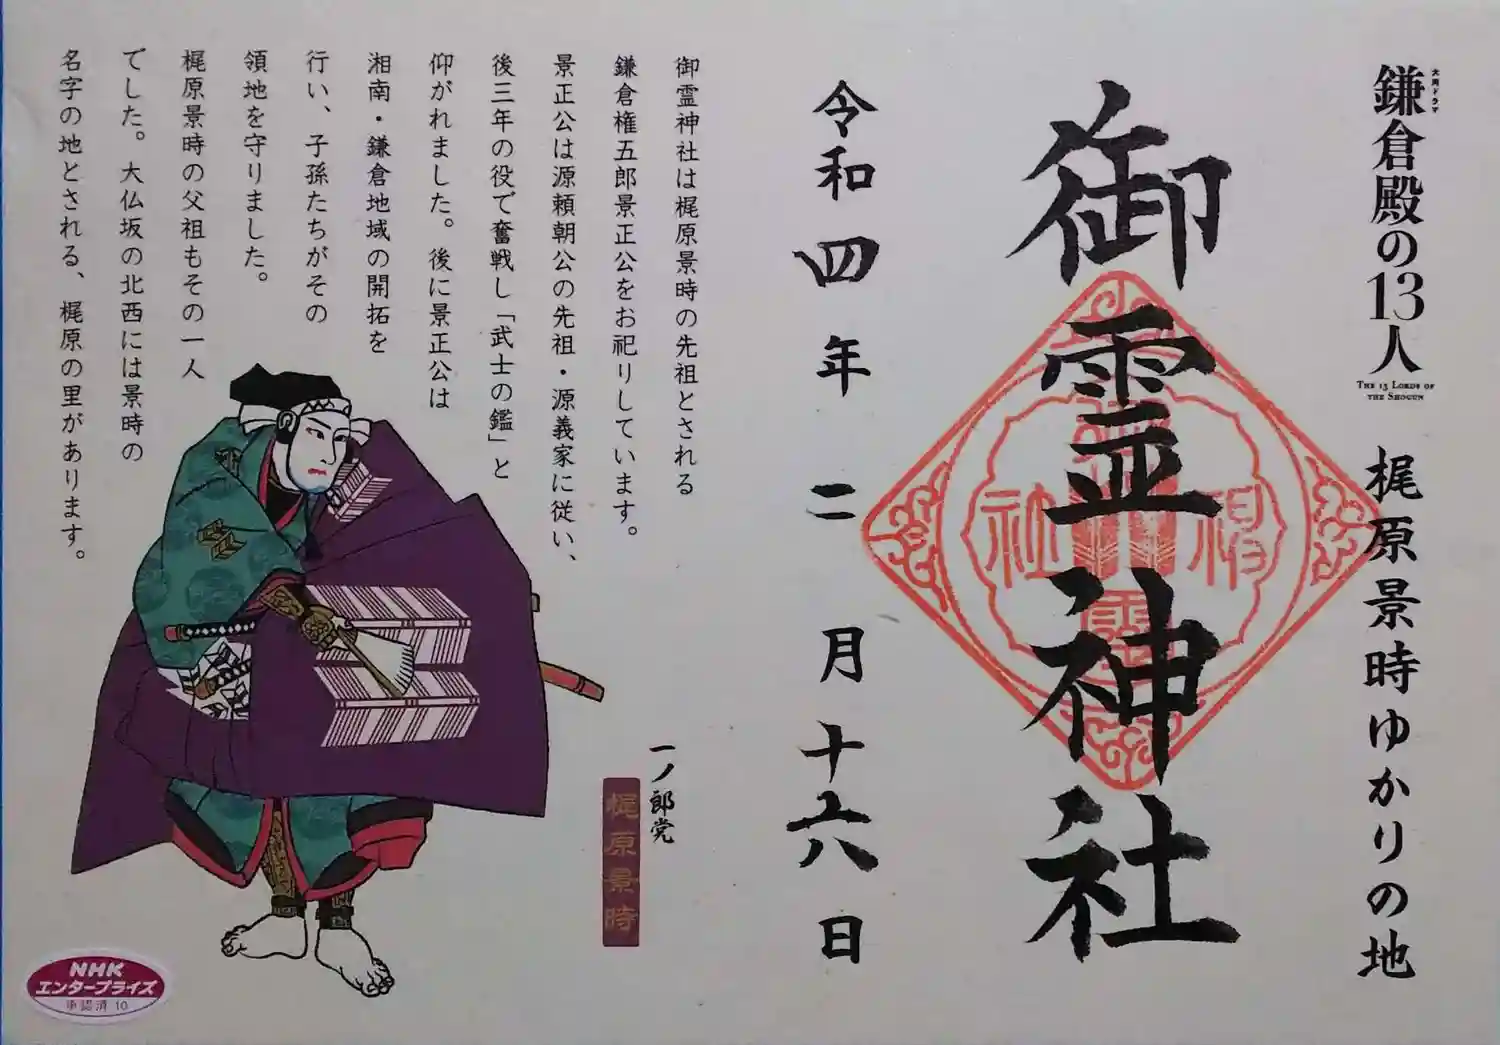 大河ドラマ
鎌倉殿の13人
THE 13 LORDS OF
THE SHOGUN
梶原景時ゆかりの地
御霊神社
令和四年二月十六日
御霊神社は梶原景時の先祖とされる
鎌倉権五郎景正公をお祀りしています。
景正公は源頼朝公の先祖・源義家に従い、
後三年の役で奮戦し「武士の鑑」と
仰がれました。後に景正公は
湘南・鎌倉地域の開拓を
行い、子孫たちがその
領地を守りました。
梶原景時の父祖もその一人
でした。大仏坂の北西には景時の
名字の地とされる、梶原の里があります。
一ノ郎党
梶原景時
NHK
エンタープライズ
承認済 10